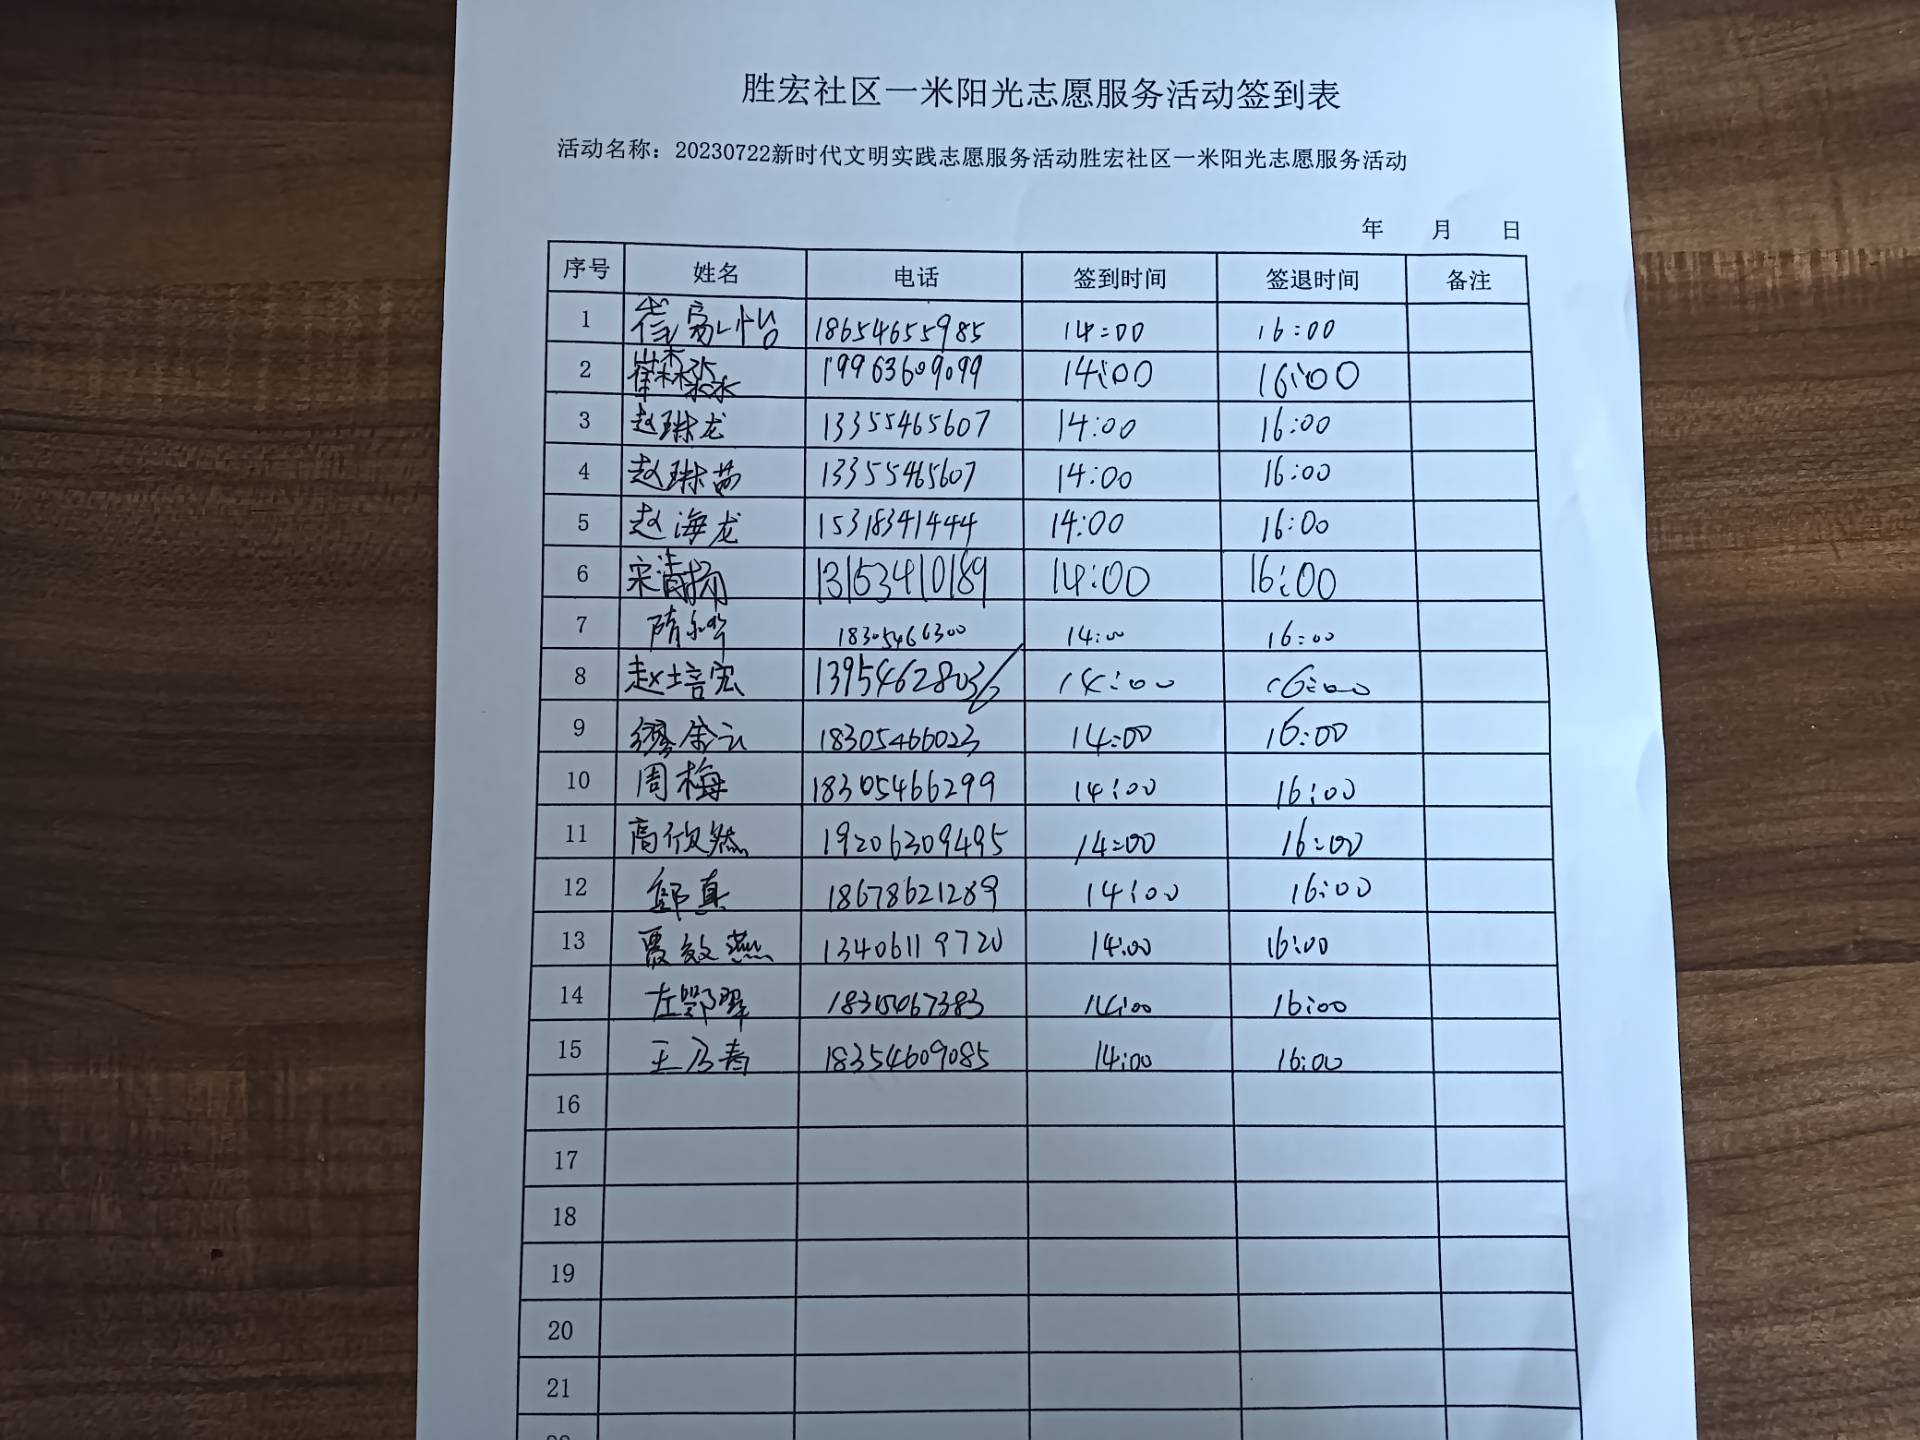 胜宏社区一米阳光志愿服务活动签到表
活动名称：20230722新时代文明实践志愿服务活动胜宏社区一米阳光志愿服务活动
年 月 日
序号 姓名 电话 签到时间 签退时间 备注
1 18654655985 14:00 16:00
2 崔森淼 19963609099 14:00 16:00
3 赵琳龙 13355465607 14:00 16:00
4 赵琳茜 13355465607 14:00 16:00
5 赵海龙 15318341444 14:00 16:00
6 宋清扬 13153410189 14:00 16:00
7 18305466300 14:00 16:00
8 赵培宏 14:00 16:00
9 缪金云 18305466023 14:00 16:00
10 周梅 18305466299 14:00 16:00
11 高欣然 19206309495 14:00 16:00
12 真 18678621289 14:00 16:00
13 敏燕 13406119720 14:00 16:00
14 左 18305467383 14:00 16:00
15 王乃春 18354609085 14:00 16:00
16
17
18
19
20
21